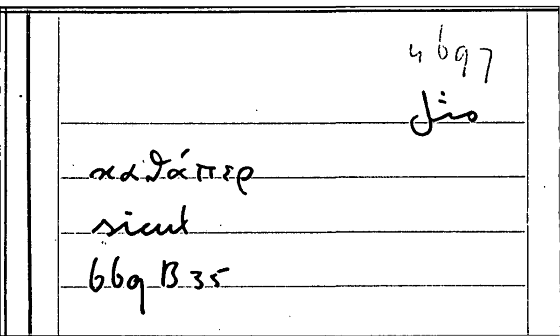 4697
مثل
καθάπερ
sicut
669 B 35